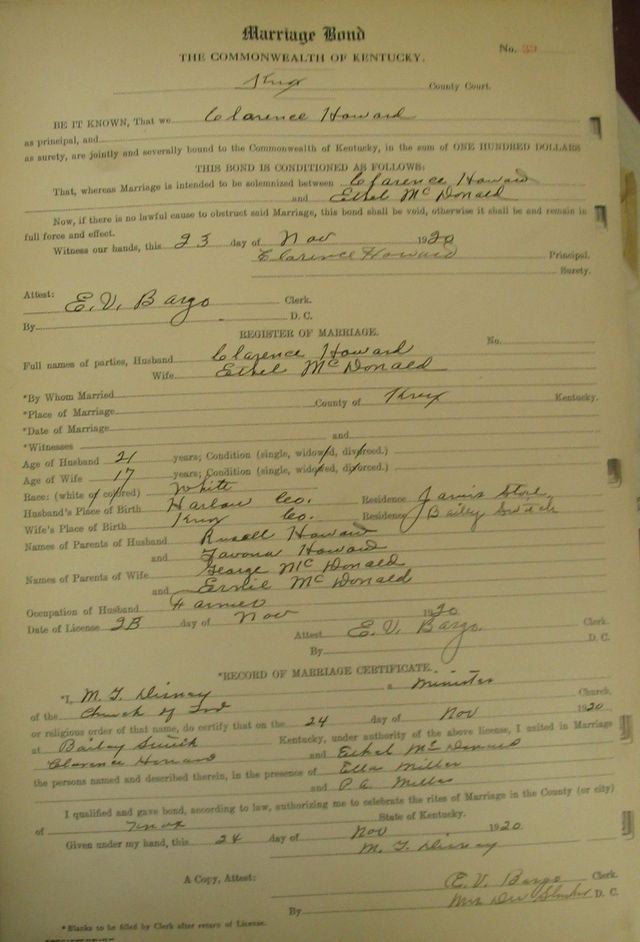 Marriage Bond
THE COMMONWEALTH OF KENTUCKY.
No. 39
Knox County Court.
BE IT KNOWN, That we Clarence Howard
as principal, and
as surety, are jointly and severally bound to the Commonwealth of Kentucky, in the sum of ONE HUNDRED DOLLARS
THIS BOND IS CONDITIONED AS FOLLOWS:
That, whereas Marriage is intended to be solemnized between Clarence Howard
and Ethel McDonald
Now, if there is no lawful cause to obstruct said Marriage, this bond shall be void, otherwise it shall be and remain in
full force and effect.
Witness our hands, this 23 day of Nov 1920
Clarence Howard Principal.
Surety.
Attest:
E. V. Bargo Clerk.
By D. C.
REGISTER OF MARRIAGE.
No.
Full names of parties, Husband Clarence Howard
Wife Ethel McDonald
*By Whom Married
*Place of Marriage County of Knox Kentucky.
*Date of Marriage
*Witnesses and
Age of Husband 21 years; Condition (single, widowed, divorced.)
Age of Wife 17 years; Condition (single, widowed, divorced.)
Race: (white or colored) White
Husband's Place of Birth Harlan Co. Residence Jarvis Store
Wife's Place of Birth Knox Co. Residence Bailey Switch
Names of Parents of Husband Russell Howard
and Howard
Names of Parents of Wife George McDonald
and McDonald
Occupation of Husband Farmer
Date of License 23 day of Nov 1920
Attest E. V. Bargo Clerk.
By D. C.
*RECORD OF MARRIAGE CERTIFICATE.
*I, M. T. Disney a Minister
of the Church of God Church,
or religious order of that name, do certify that on the 24 day of Nov 1920
at Bailey Switch Kentucky, under authority of the above license, I united in Marriage
Clarence Howard and Ethel McDonald
the persons named and described therein, in the presence of Ella Miller
and P. A. Miller
I qualified and gave bond, according to law, authorizing me to celebrate the rites of Marriage in the County (or city)
of Knox State of Kentucky.
Given under my hand, this 24 day of Nov 1920
M. T. Disney
A Copy, Attest: E. V. Bargo Clerk.
By D. C.
*Blanks to be filled by Clerk after return of License.